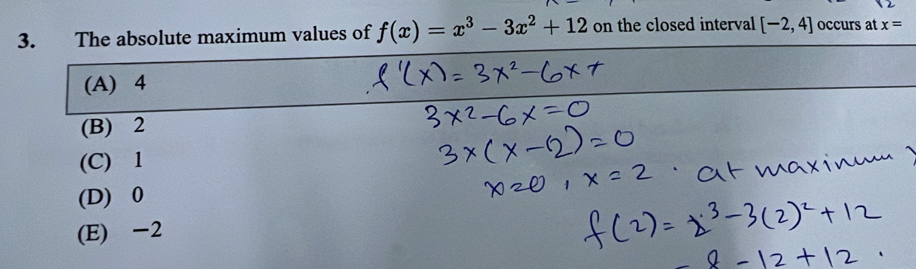 3. The absolute maximum values of f(x) = x³ − 3x² + 12 on the closed interval [−2, 4] occurs at x =
(A) 4
f'(x) = 3x²-6x+
(B) 2
3x²-6x=0
(C) 1
3x(x-2)=0
(D) 0
x=0, x=2. at maximum
(E) −2
f(2)= 2³-3(2)²+12
8-12+12.